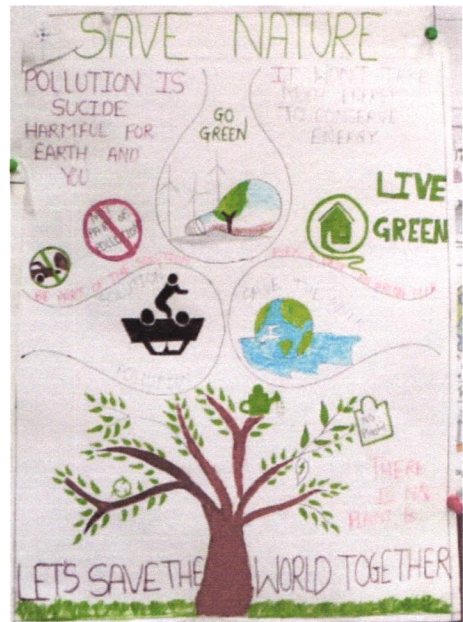 SAVE NATURE
POLLUTION IS
SUCIDE
HARMFUL FOR
EARTH AND
YOU
IT WON'T TAKE
MUCH ENERGY
TO CONSERVE
ENERGY
GO
GREEN
LIVE
GREEN
BE PART OF THE SOLUTION
SOLUTION
POLLUTION
SAVE THE
NO
PLASTIC
THERE
IS NO
PLANET B
LET'S SAVE THE WORLD TOGETHER